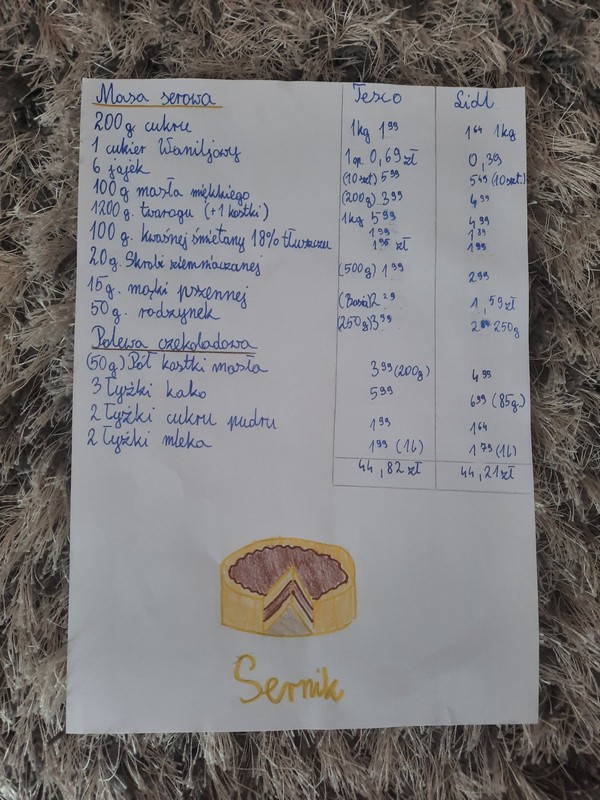 Masa serowa Tesco Lidl
200g cukru 1kg 1⁹⁹ 1⁶⁴ 1kg
1 cukier Waniljowy 1 op. 0,69 zł 0,39
6 jajek (10szt) 5⁹⁹ 5⁴⁹ (10szt.)
100g masła miękkiego (200g) 3⁹⁹ 4⁹⁹
1200g. twarogu (+1 kostki) 1kg 5⁹⁹ 4⁹⁹
1⁹⁹
100g. kwaśnej śmietany 18% tłuszczu zł 1⁹⁹
20g. Skrobi ziemniaczanej (500g) 1⁹⁹ 2⁹⁹
15g. mąki pszennej (Basia) 2²⁹ 1,59 zł
50g. rodzynek (250g) 3⁹⁹ 250g
Polewa czekoladowa
(50g) Pół kostki masła 3⁹⁹ (200g) 4⁹⁹
3 łyżki kako 5⁹⁹ 6⁹⁹ (85g.)
2 łyżki cukru pudru 1⁹⁹ 1⁶⁴
2 łyżki mleka 1⁹⁹ (1l) 1⁷⁹ (1l)
44,82 zł 44,21 zł
Sernik